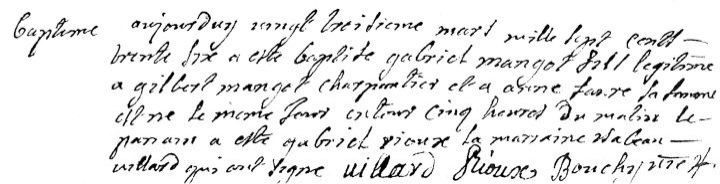 Bapteme aujourduy vingt troisieme mars mille sept cents
trente six a este baptise gabriel mangot fils legitime
a gilbert mangot charpantier et a anne favre sa femme
est ne le meme jour entour cinq heures du matin le
parrain a este gabriel rioux la marraine
villard qui ont signe villard Rioux Bouchy